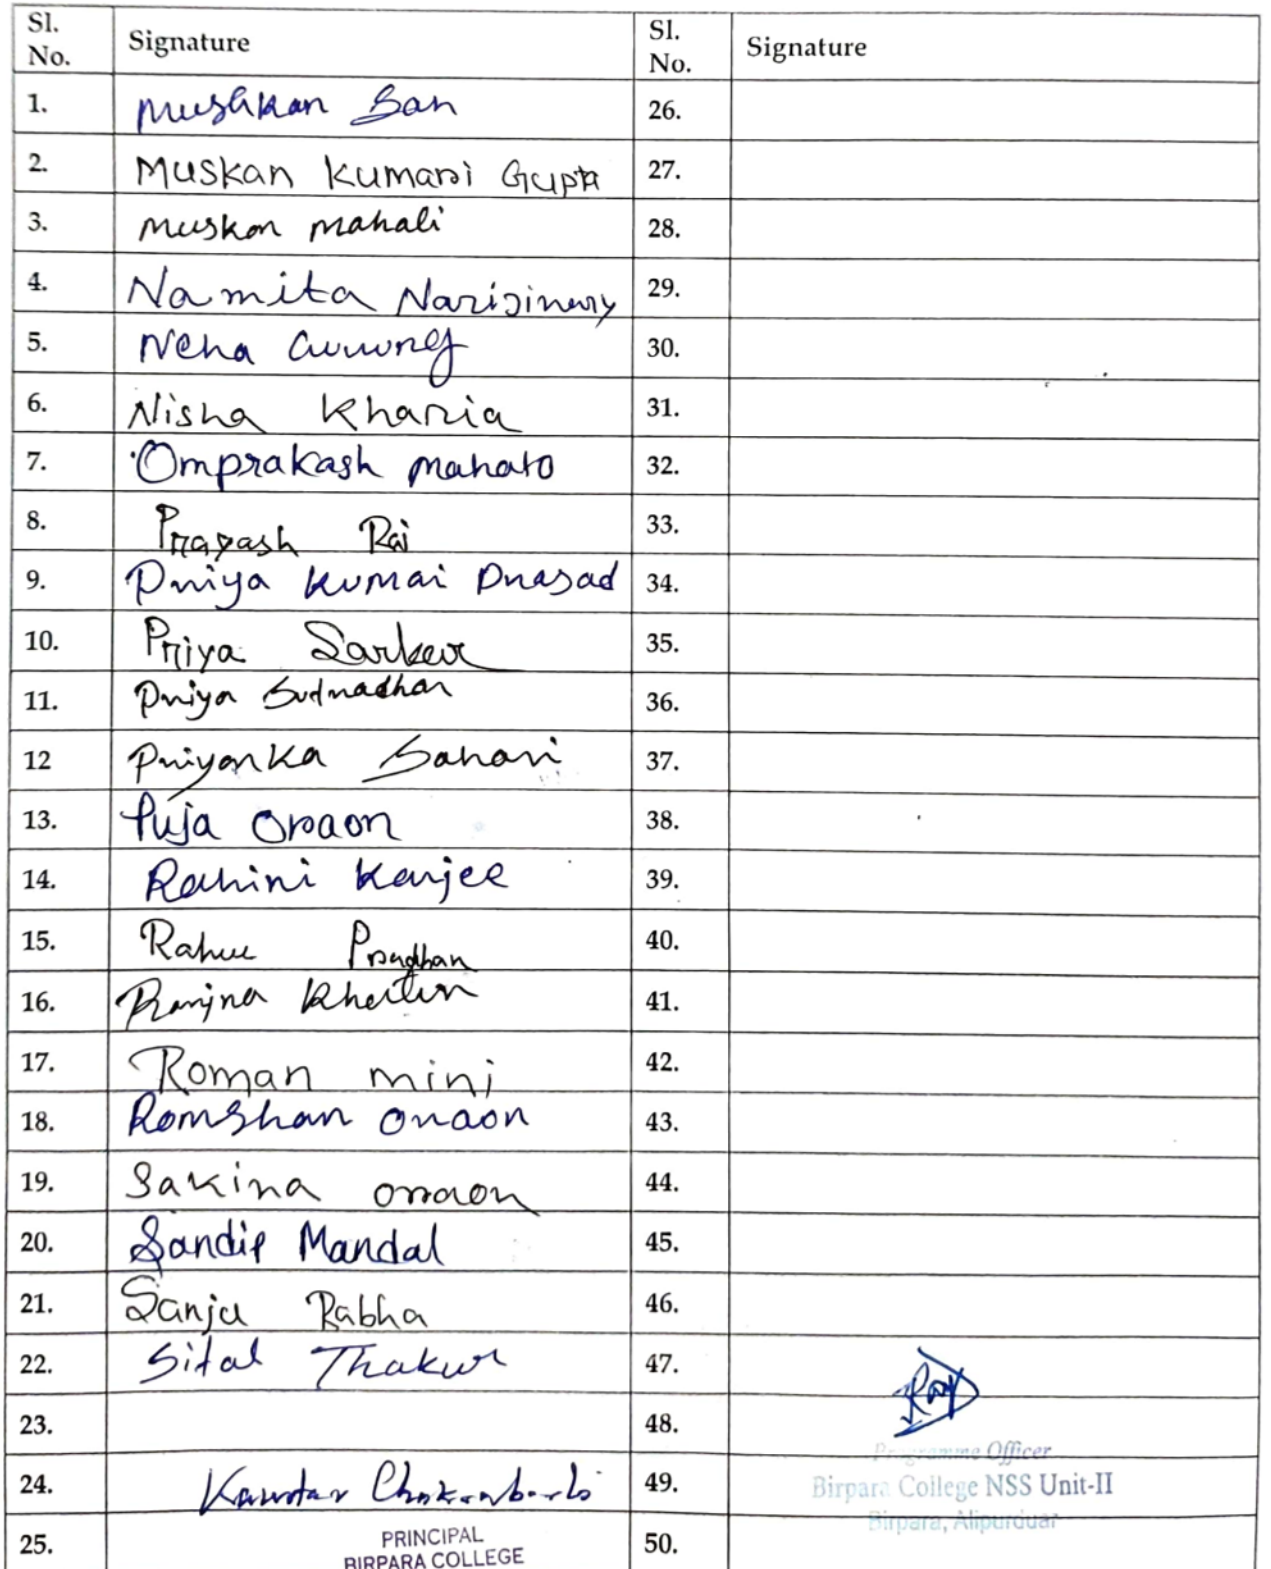 Sl. No. Signature Sl. No. Signature
1. Mushkan Sah 26.
2. Muskan Kumari Gupta 27.
3. Muskan Mahali 28.
4. Namita Narzinary 29.
5. Neha Gurung 30.
6. Nisha Kharia 31.
7. Omprakash Mahato 32.
8. Prayash Rai 33.
9. Priya Kumai Prasad 34.
10. Priya Sarkar 35.
11. Priya Sutradhar 36.
12 Priyanka Sahani 37.
13. Puja Oraon 38.
14. Rahini Karjee 39.
15. Rahul Pradhan 40.
16. Ranjna Khatun 41.
17. Roman Minj 42.
18. Romshan Oraon 43.
19. Sakina Oraon 44.
20. Sandip Mandal 45.
21. Sanju Rabha 46.
22. Sital Thakur 47.
Ray
23. 48.
Programme Officer
24. 49.
Birpara College NSS Unit-II
Birpara, Alipurduar
25. PRINCIPAL 50.
BIRPARA COLLEGE